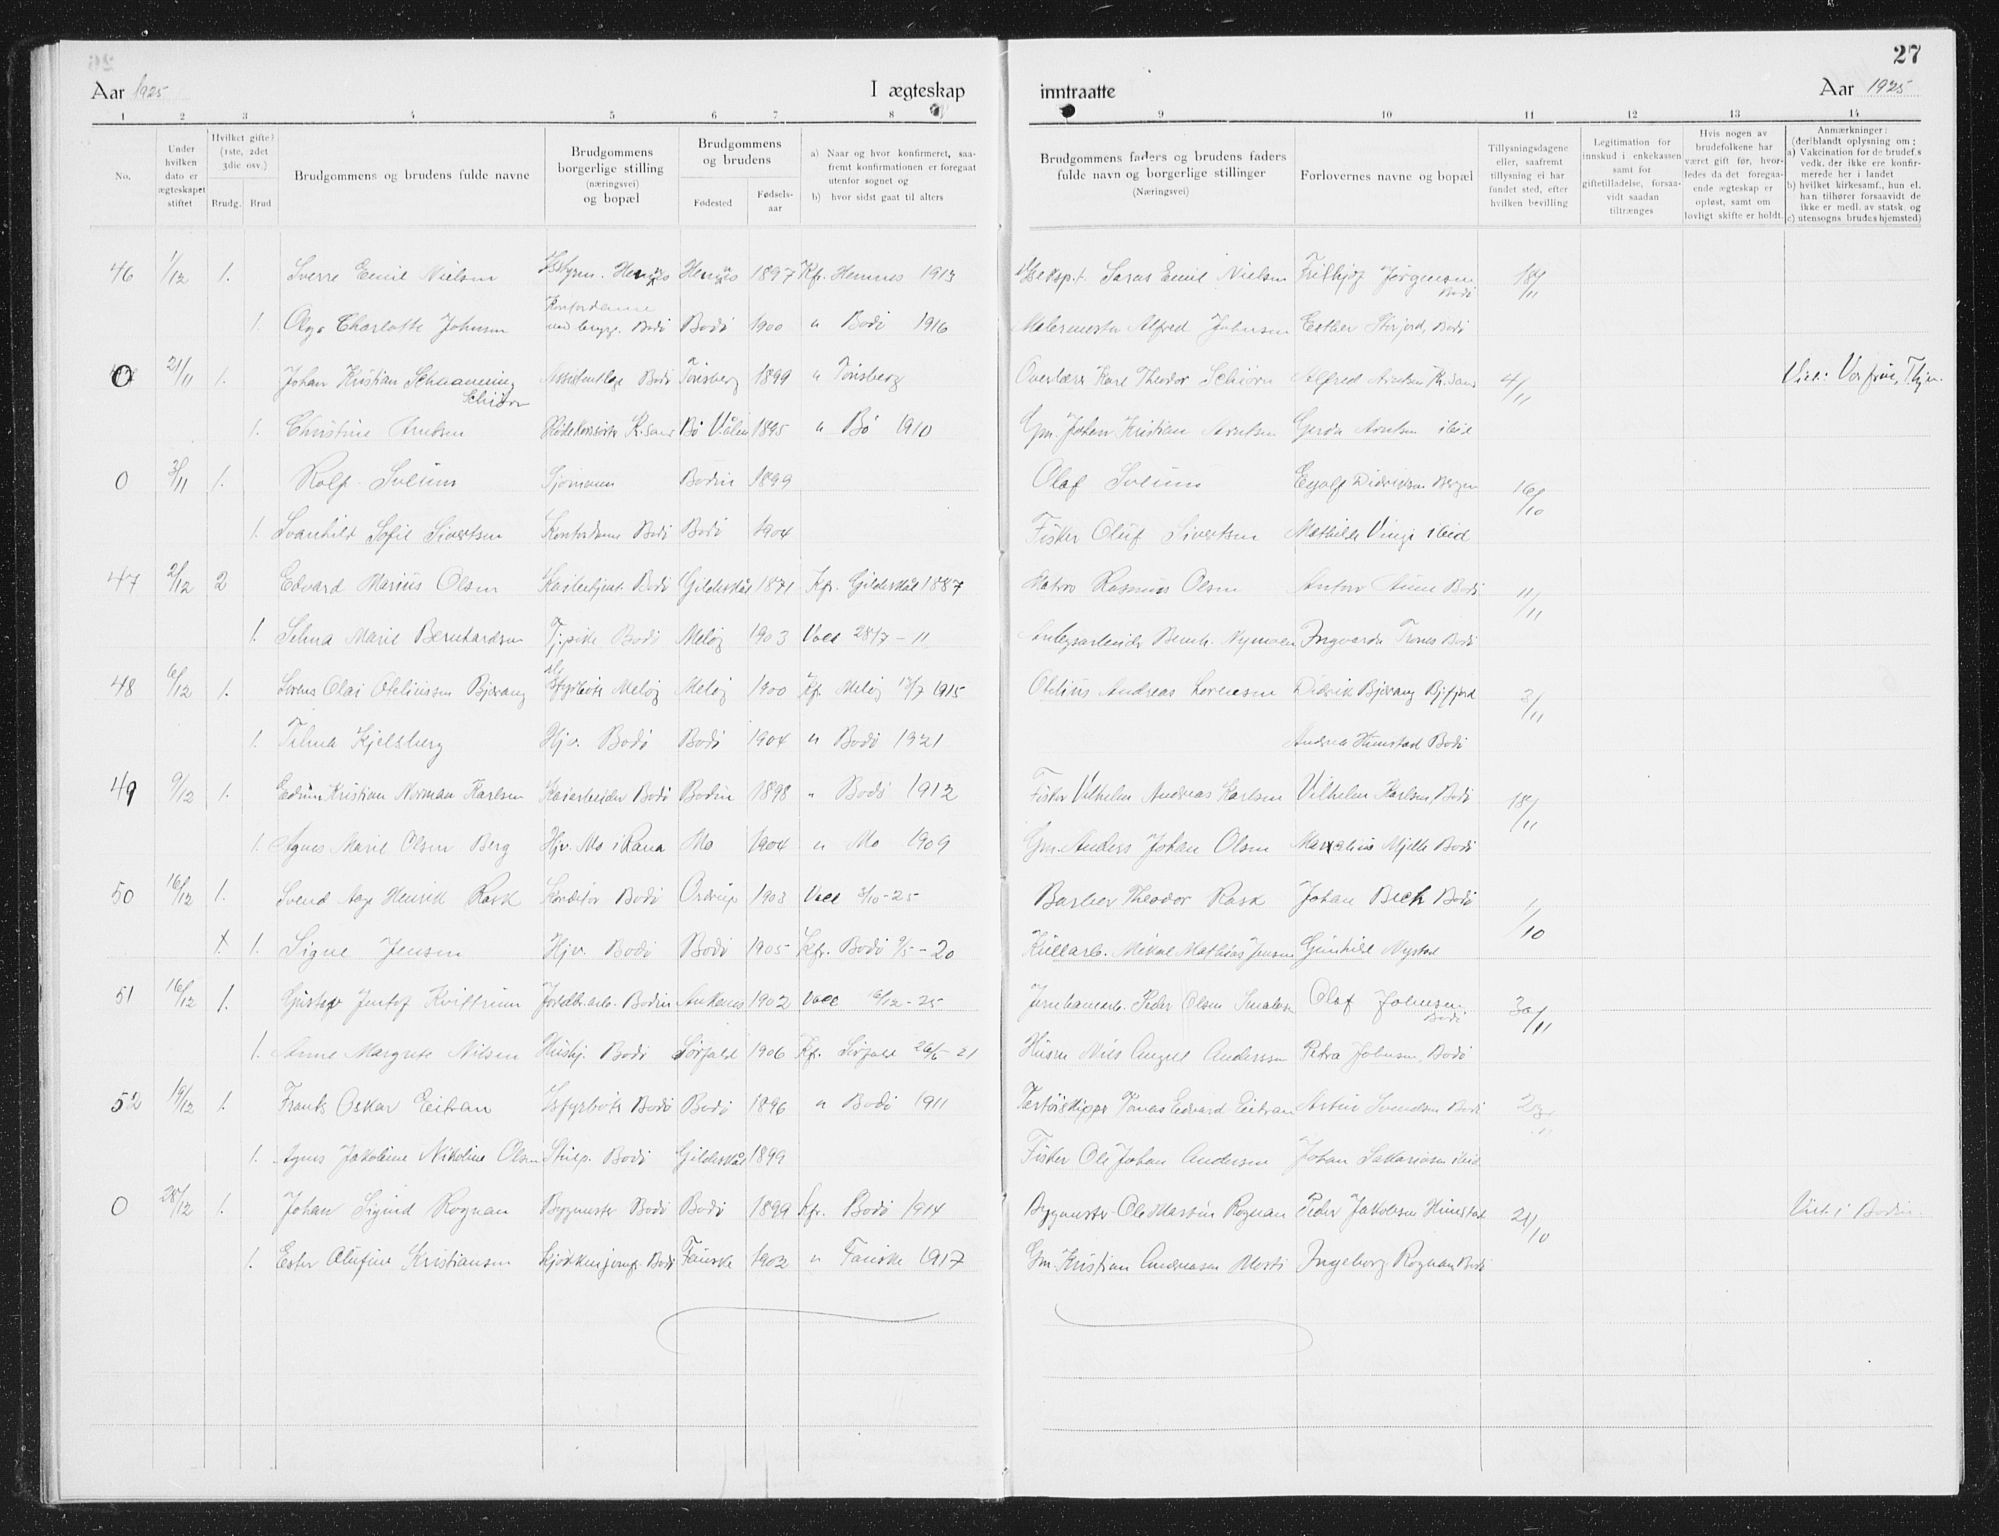 27
Aar 1925 I ægteskap
inntraatte Aar 1925
1 2 3 4 5 6 7 8
9 10 11 12 13 14
No.
Under hvilken dato er ægteskapet stiftet
Hvilket gifte? (1ste, 2det 3die osv.)
Brudg. Brud
Brudgommens og brudens fulde navne
Brudgommens borgerlige stilling (næringsvei) og bopæl
Brudgommens og brudens
Fødested Fødsels-aar
a) Naar og hvor konfirmeret, saa-fremt konfirmationen er foregaat utenfor sognet og
b) hvor sidst gaat til alters
Brudgommens faders og brudens faders fulde navn og borgerlige stillinger (Næringsvei)
Forlovernes navne og bopæl
Tillysningsdagene eller, saafremt tillysning ei har fundet sted, efter hvilken bevilling
Legitimation for innskud i enkekassen samt for giftetilladelse, forsaa-vidt saadan tiltrænges
Hvis nogen av brudefolkene har været gift før, hvor-ledes da det foregaa-ende ægteskap er opløst, samt om lovligt skifte er holdt.
Anmærkninger: (deriblandt oplysning om: a) Vakcination for de brudef.s vedk. der ikke ere konfir-merede her i landet b) hvilket kirkesamf., hun el. han tilhører forsaavidt de ikke er medl. av statsk. og c) utensogns brudes hjemsted)
46 1/12 1. Sverre Emil Nielsen Hemnes 1897 Kfr. Hemnes 1913 Emil Nielsen Frithjof Jørgensen Bodø 18/11
1. Olga Charlotte Johnsen Bodø Bodø 1900 " Bodø 1916 Malermester Alfred Johnsen Esther Bodø
0 21/11 1. Johan Kristian Schwanning Schiørn Bodø Tønsberg 1899 " Tønsberg Overlærer Karl Theodor Schiørn Alfred Arntsen Kr.sand 4/11
1. Christine Arntsen Kr.sund Bø 1895 " Bø 1910 Gm. Johan Kristian Arntsen Gerda Arntsen ibid
0 3/11 1. Rolf Solium Sjømann Bodin 1899 Olaf Solium Eyolf Didriksen Bergen 16/10
1. Svanhild Sofie Sivertsen Kontordame Bodø Bodø 1904 Fisker Oluf Sivertsen Mathilde Vingi ibid
47 2/12 2 Edvard Marius Olsen Bodø Gildeskål 1871 Kfr. Gildeskål 1887 Rasmus Olsen Anton Aune Bodø 11/11
1. Selma Marie Bernhardsen Tj.pike Bodø Meløy 1903 Vacc 28/7-11 Anlegsarbeider Bernh. Nymoen Ingvarda Trones Bodø
48 6/12 1. Lorens Olai Oteliussen Bjærang Fyrbøt. Meløy Meløy 1900 Kf. Meløy 1915 Otelius Andreas Lorensen Didrik Bjærang 3/11
1. Tilma Kjelsberg Hjv. Bodø Bodø 1904 " Bodø 1921 Andrea Himstad Bodø
49 9/12 1. Edvin Kristian Norman Karlsen Kaiarbeider Bodø Bodin 1898 " Bodø 1912 Fisker Vilhelm Andreas Karlsen Vilhelm Karlsen, Bodø 18/11
1. Agnes Marie Olsen Berg Hjv. Mo i Rana Mo 1904 " Mo 1909 Gm. Anders Johan Olsen Mjelle Bodø
50 16/12 1. Svend Aage Henrik Rask Konditor Bodø Ordrup 1903 Vacc 3/10-25 Barber Theodor Rask Johan Bech Bodø 1/10
1. Signe Jensen Hjv. Bodø Bodø 1905 Kfr. Bodø 9/5-20 Kullarb. Mikal Mathias Jensen Gunhild Nystad
51 16/12 1. Gustav Jentof Kvittrum Bodin Ankenes 1902 Vacc 16/12-25 Jernbanearb. Peder Olsen Olaf Johnsen Bodø 30/11
1. Anne Margrete Nilsen Hushj. Bodø Sørfold 1906 Kf. Sørfold 26/6-21 Husm Nils Angel Andersson Petra Johnsen, Bodø
52 19/12 1. Frants Oskar Eitran Fyrbøt. Bodø Bodø 1896 " Bodø 1911 Jonas Edvard Eitran Svendsen Bodø
1. Agnes Jakobine Nikoline Olsen Bodø Gildeskål 1899 Fisker Ole Johan Andersen Johan Sakariasen ibid
0 28/12 1. Johan Sigurd Rognan Bygmester Bodø Bodø 1899 Kfr. Bodø 1914 Bygmester Ole Martin Rognan Peder Jakobsen Himstad 21/10 Viet i Bodin.
1. Ester Olufine Kristiansen Kjøkkenjomf. Bodø Fauske 1902 " Fauske 1917 Gm. Kristian Andreasen Ingeborg Rognan Bodø